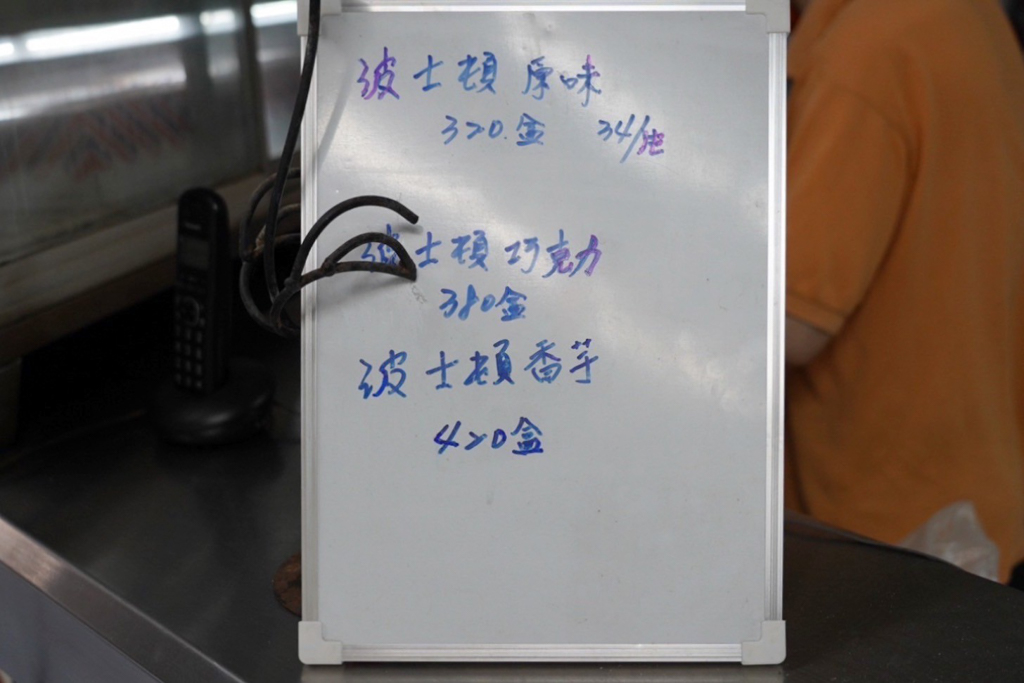 波士頓原味
320.盒 34/
波士頓巧克力
380盒
波士頓香芋
420盒